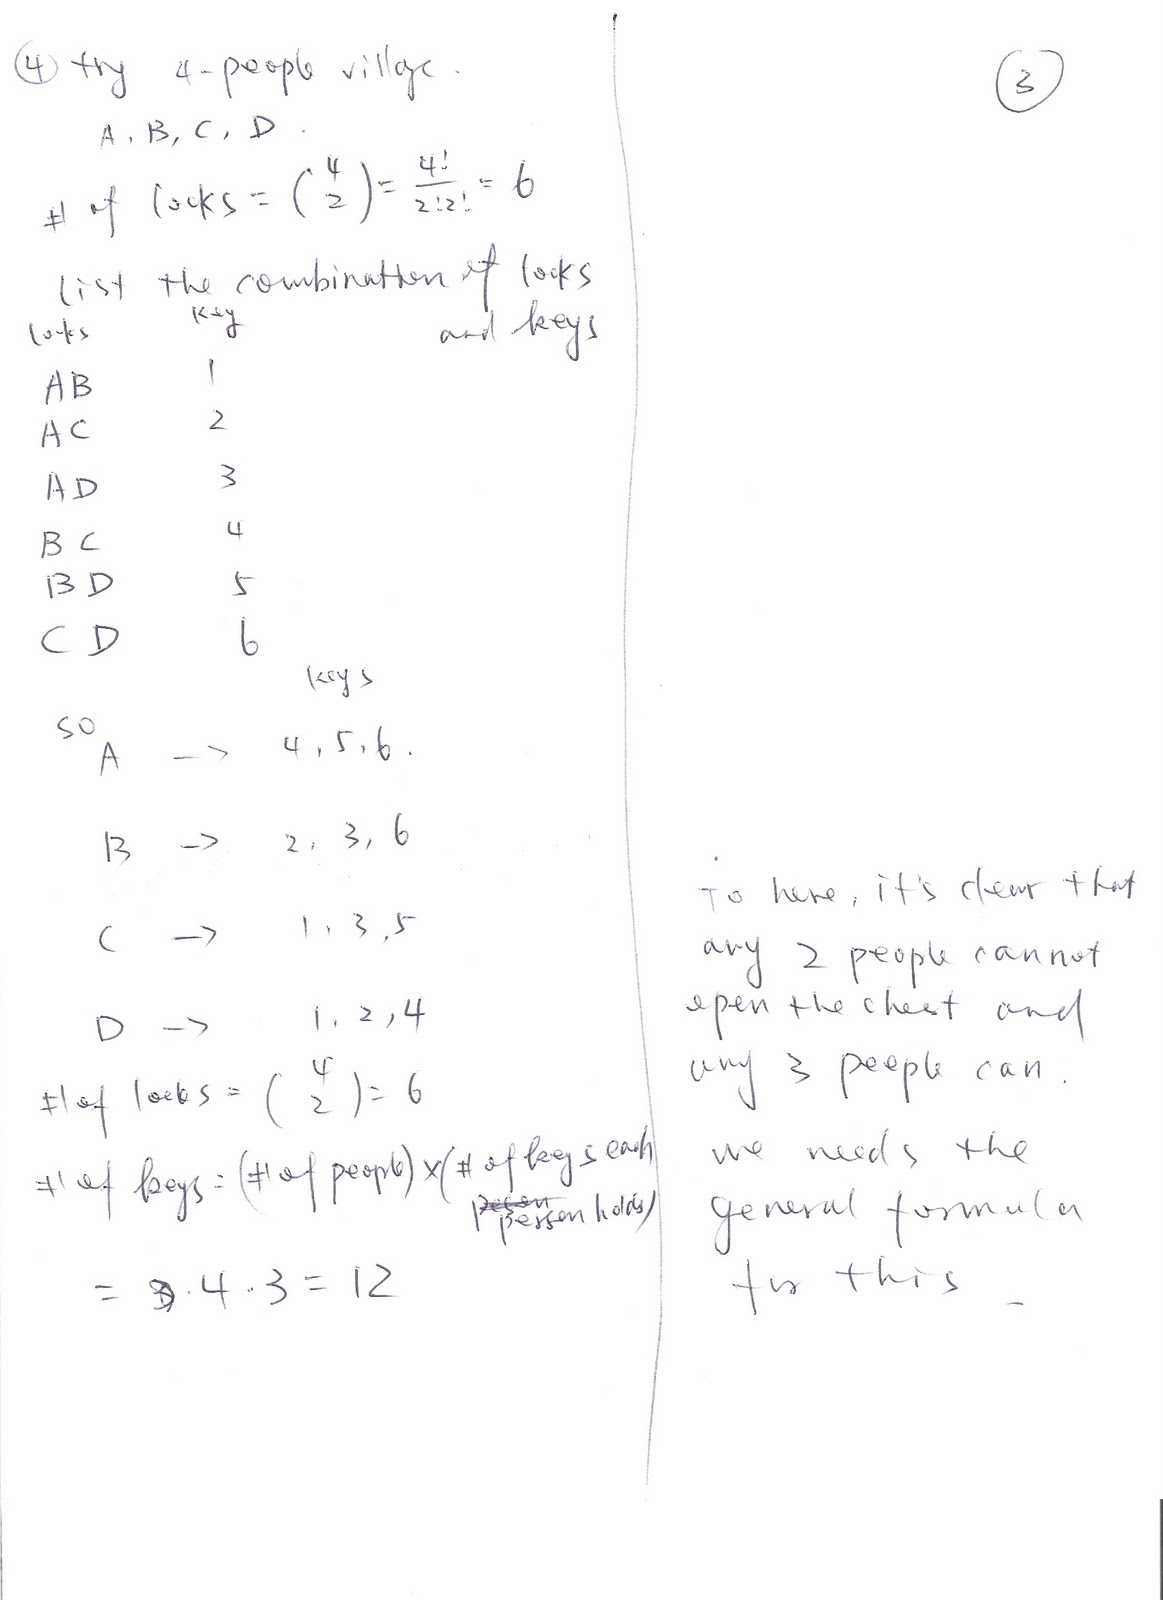 ④ try 4-people village.
A, B, C, D.
# of locks = (4 2) = 4!/2!2! = 6
list the combination of locks
and keys
locks key
AB 1
AC 2
AD 3
BC 4
BD 5
CD 6
keys
so
A -> 4, 5, 6.
B -> 2, 3, 6
C -> 1, 3, 5
D -> 1, 2, 4
# of locks = (4 2) = 6
# of keys = (# of people) x (# of keys each
person holds)
= 4 · 3 = 12
③
To here, it's clear that
any 2 people cannot
open the chest and
any 3 people can.
we needs the
general formula
for this